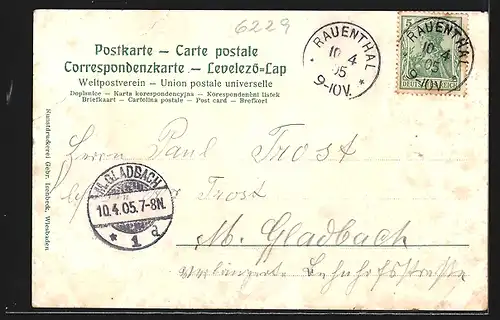 6229
Postkarte – Carte postale
Correspondenzkarte – Levelező-Lap
Weltpostverein – Union postale universelle
Dopisnice – Karta korespondencyjna – Korespondenční lístek
Briefkaart – Cartolina postale – Post card – Brefkort
RAUENTHAL
10 4
05
9-10V.
*
RAUENTHAL
10 4
05
9-10V.
5
Kunstdruckerei Gebr. Isenbeck, Wiesbaden.
Herrn Paul Trost
Trost
M. GLADBACH
10.4.05.7-8N.
* 1 d
M. Gladbach
verlängerte Bahnhofstraße